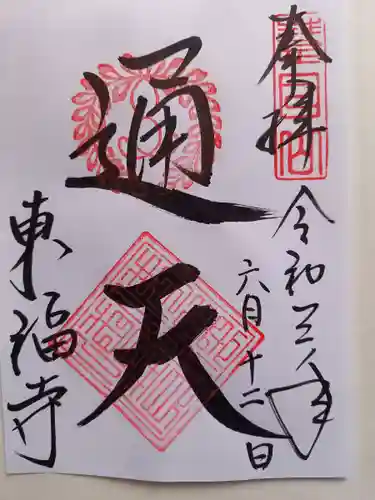 奉拝
令和三年
六月十二日
通天
東福寺